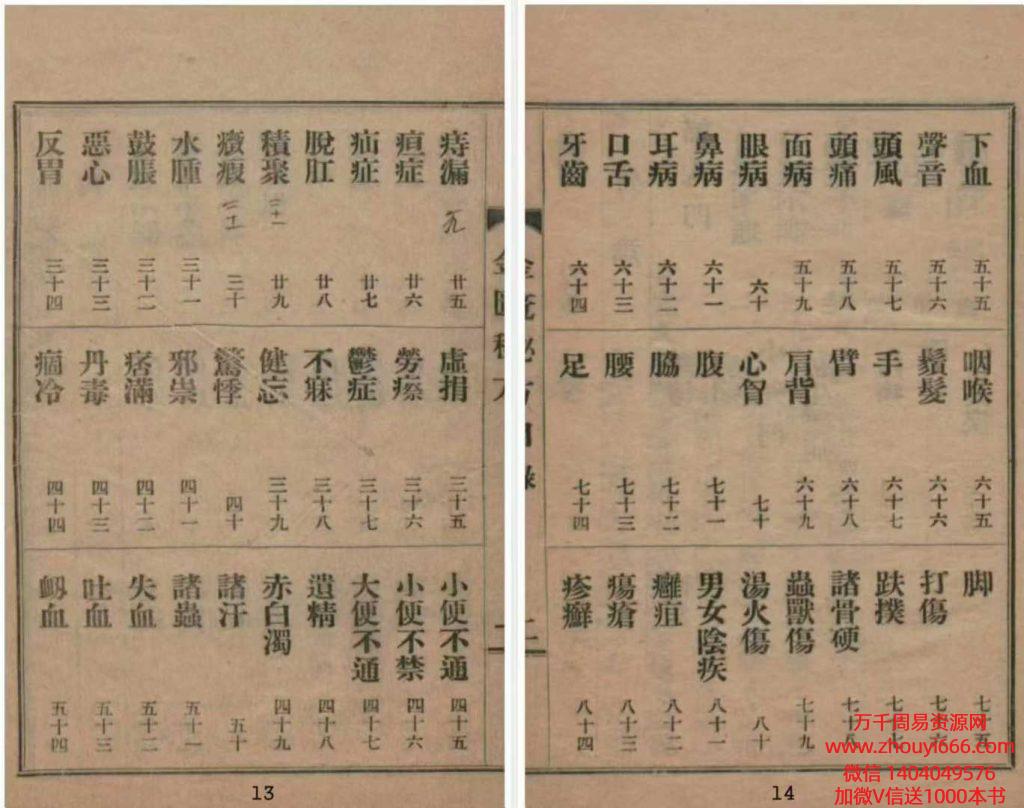 痔漏 廿五
疸症 廿六
疝症 廿七
脫肛 廿八
積聚 廿九
癥瘕 三十
水腫 三十一
鼓脹 三十二
惡心 三十三
反胃 三十四
虛損 三十五
勞瘵 三十六
鬱症 三十七
不寐 三十八
健忘 三十九
驚悸 四十
邪祟 四十一
痞滿 四十二
丹毒 四十三
痼冷 四十四
小便不通 四十五
小便不禁 四十六
大便不通 四十七
遺精 四十八
赤白濁 四十九
諸汗 五十
諸蟲 五十一
失血 五十二
吐血 五十三
衄血 五十四
13
金匱秘方目錄
二
下血 五十五
聲音 五十六
頭風 五十七
頭痛 五十八
面病 五十九
眼病 六十
鼻病 六十一
耳病 六十二
口舌 六十三
牙齒 六十四
咽喉 六十五
鬚髮 六十六
手 六十七
臂 六十八
肩背 六十九
心胷 七十
腹 七十一
脇 七十二
腰 七十三
足 七十四
脚 七十五
打傷 七十六
跌撲 七十七
諸骨硬 七十八
蟲獸傷 七十九
湯火傷 八十
男女陰疾 八十一
癰疽 八十二
瘍瘡 八十三
疹癬 八十四
14
万千周易资源网
www.zhouyi666.com
微信 1404049576
加微V信送1000本书